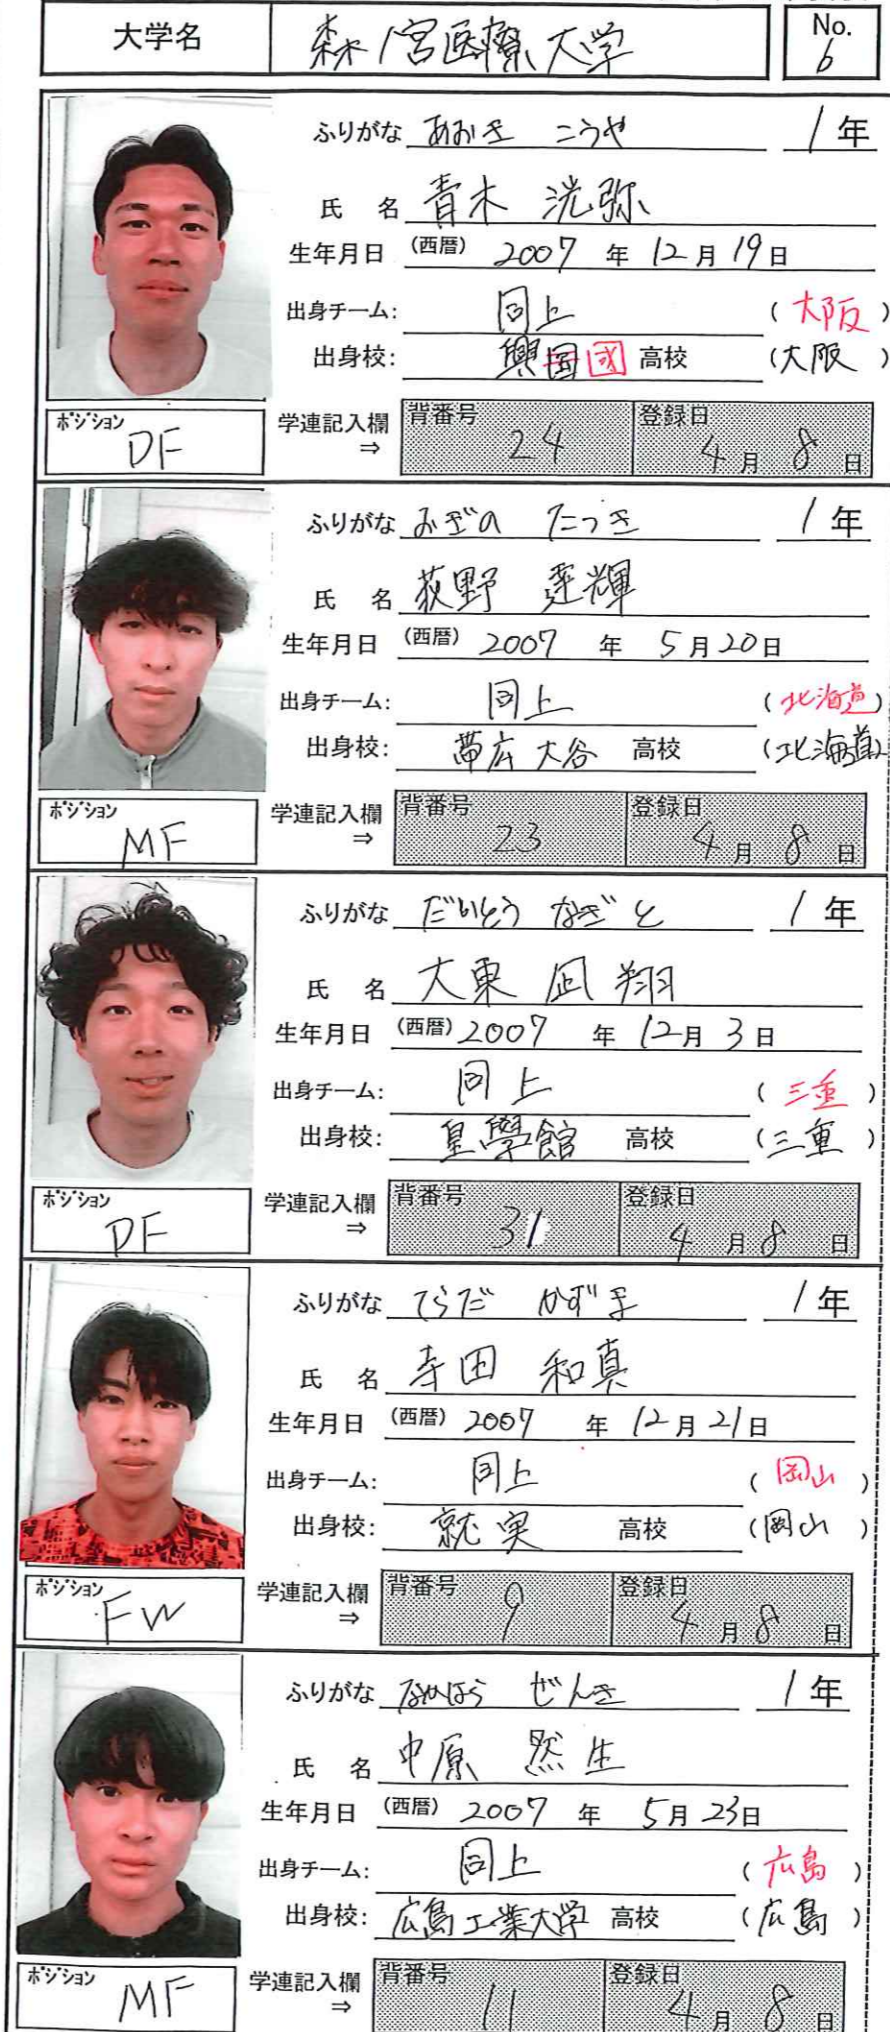 大学名 森ノ宮医療大学 No. 6
ふりがな あおき こうや 1年
氏 名 青木 洸弥
生年月日 (西暦) 2007 年 12月 19日
出身チーム: 同上 (大阪)
出身校: 興国國 高校 (大阪)
ポジション DF 学連記入欄⇒ 背番号 24 登録日 4月 8日
ふりがな おぎの たつき 1年
氏 名 荻野 達輝
生年月日 (西暦) 2007 年 5月20日
出身チーム: 同上 (北海道)
出身校: 帯広大谷 高校 (北海道)
ポジション MF 学連記入欄⇒ 背番号 23 登録日 4月 8日
ふりがな だいとう なぎと 1年
氏 名 大東 凪翔
生年月日 (西暦) 2007 年 12月 3日
出身チーム: 同上 (三重)
出身校: 皇學館 高校 (三重)
ポジション DF 学連記入欄⇒ 背番号 31 登録日 4月 8日
ふりがな てらだ かずま 1年
氏 名 寺田 和真
生年月日 (西暦) 2007 年 12月21日
出身チーム: 同上 (岡山)
出身校: 就実 高校 (岡山)
ポジション FW 学連記入欄⇒ 背番号 9 登録日 4月 8日
ふりがな なかはら ぜんき 1年
氏 名 中原 然生
生年月日 (西暦) 2007 年 5月23日
出身チーム: 同上 (広島)
出身校: 広島工業大学 高校 (広島)
ポジション MF 学連記入欄⇒ 背番号 11 登録日 4月 8日